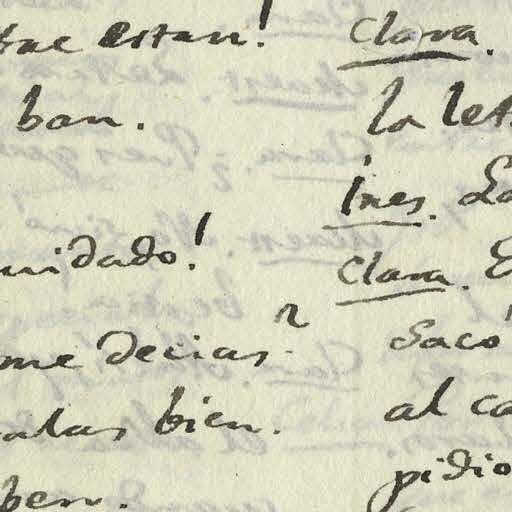 estan!
ban.
uidado!
me decias?
alas bien.
ben.
Clara.
la let
Ines. La
Clara. E
Sacó
al ca
pidio